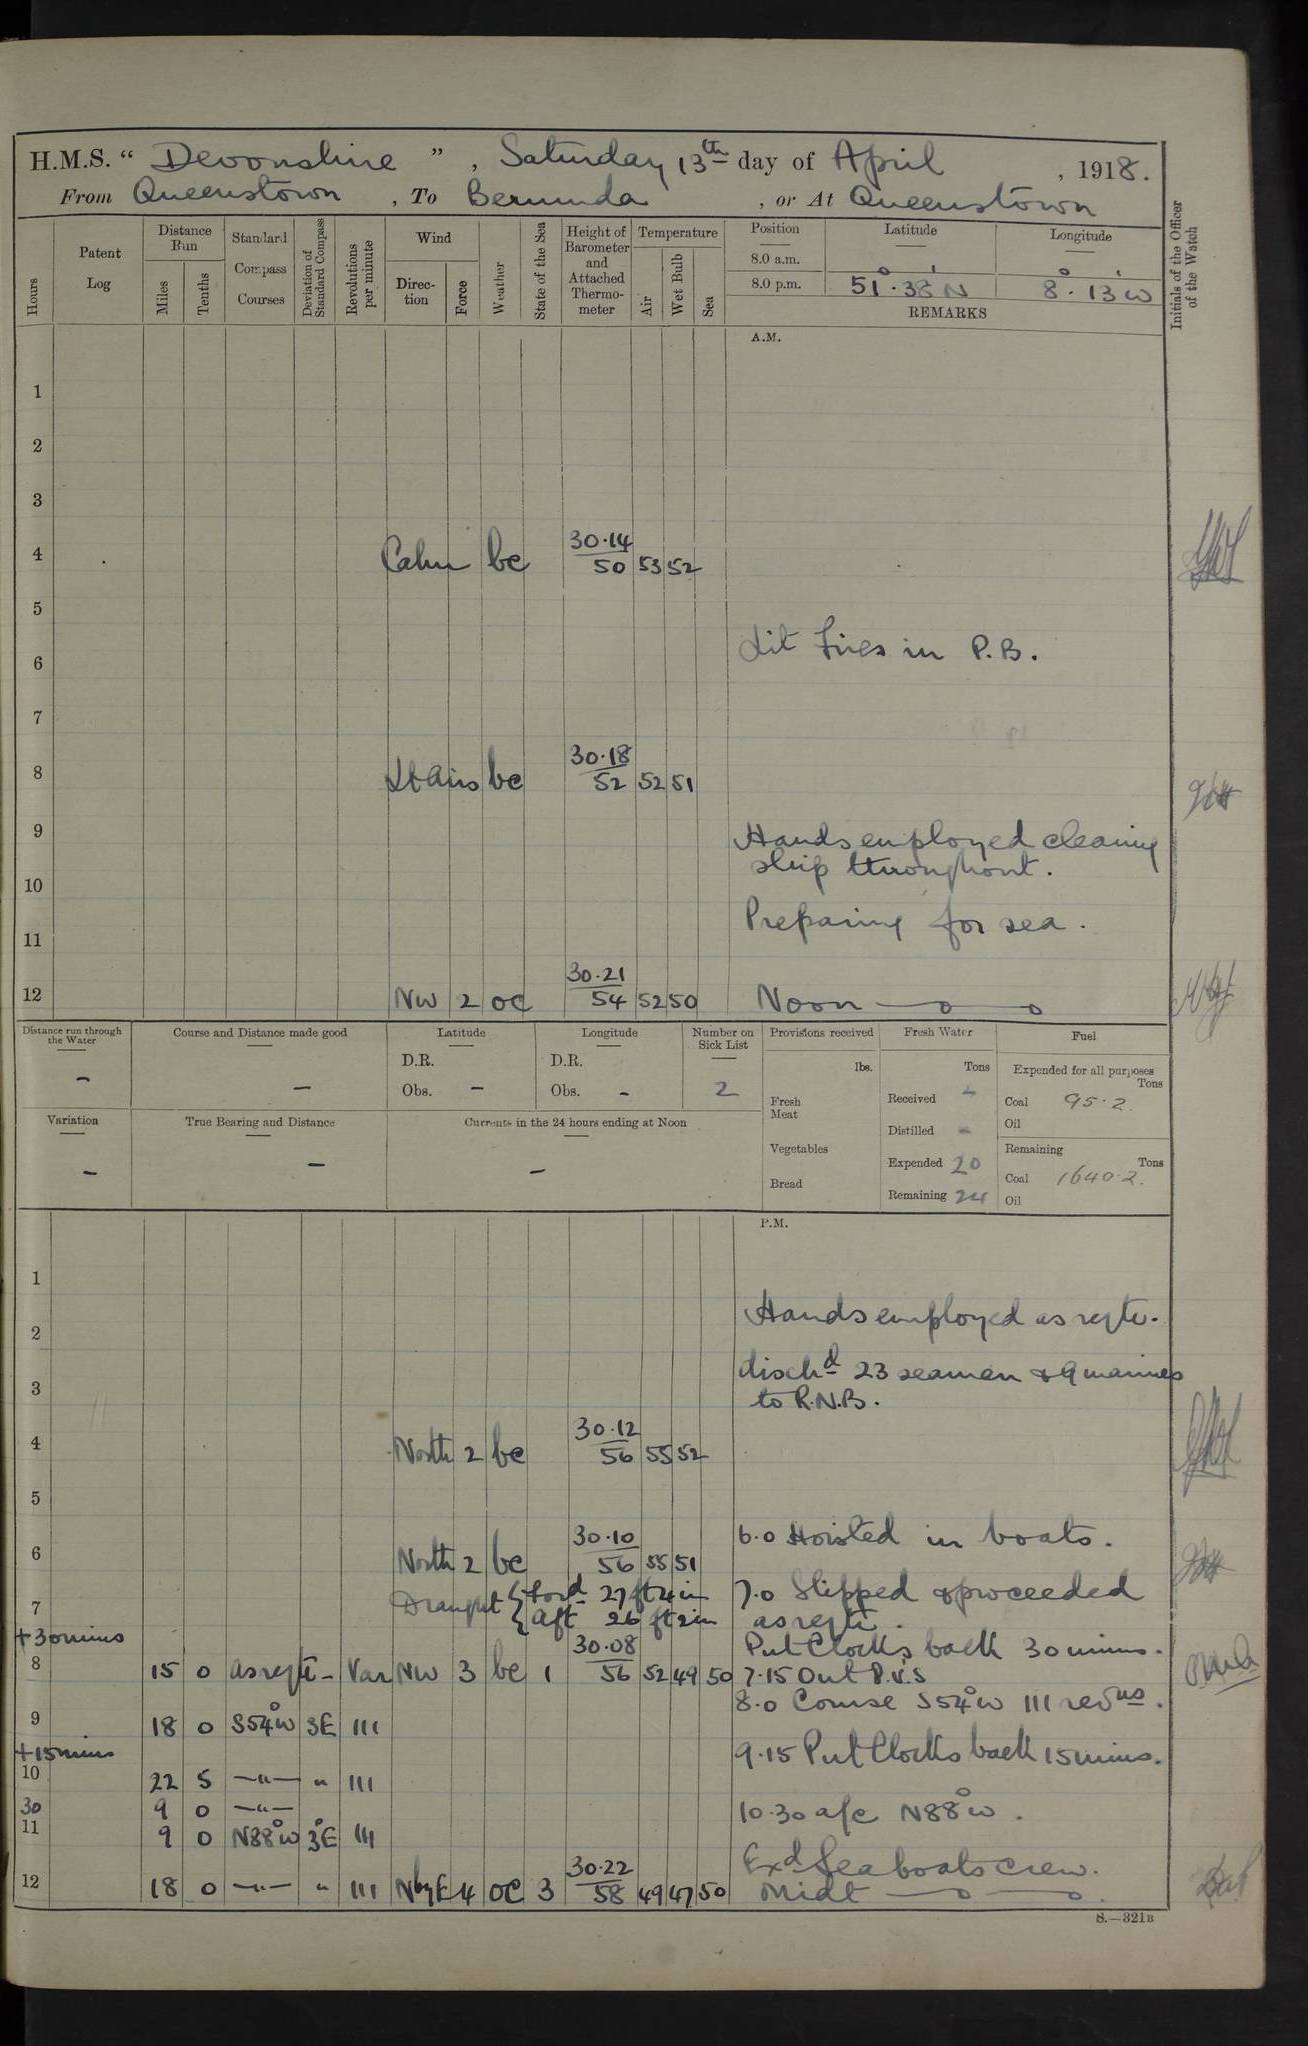 H.M.S. " Devonshire ", Saturday 13th day of April, 1918.
From Queenstown, To Bermuda, or At Queenstown
Hours
Patent Log
Distance Run
Miles
Tenths
Standard Compass Courses
Deviation of Standard Compass
Revolutions per minute
Wind
Direction
Force
Weather
State of the Sea
Height of Barometer and Attached Thermometer
Temperature
Air
Wet Bulb
Sea
Position Latitude Longitude
8.0 a.m. ° ' ° '
8.0 p.m. 51.38 N 8.13 W
REMARKS
Initials of the Officer of the Watch
A.M.
1
2
3
4 Calm bc 30.14 50 53 52
5
Lit Fires in P.B.
6
7
8 Lt Airs bc 30.18 52 52 51
9 Hands employed cleaning
ship throughout.
10
Preparing for sea.
11
12 NW 2 oc 30.21 54 52 50 Noon
Distance run through the Water -
Course and Distance made good -
Latitude
D.R.
Obs. -
Longitude
D.R.
Obs. -
Number on Sick List
2
Provisions received
lbs.
Fresh Meat
Vegetables
Bread
Fresh Water
Tons
Received -
Distilled -
Expended 20
Remaining 24
Fuel
Expended for all purposes
Tons
Coal 95.2
Oil
Remaining
Tons
Coal 1640.2
Oil
Variation -
True Bearing and Distance -
Currents in the 24 hours ending at Noon -
P.M.
1
2 Hands employed as reqte.
3 dischd 23 seamen & 9 marines
to R.N.B.
4 North 2 bc 30.12 56 55 52
5
6 North 2 bc 30.10 56 55 51 6.0 Hoisted in boats.
7 Draught { Ford 27 ft 4 in 7.0 Slipped & proceeded
{ Aft 26 ft 2 in as reqte.
+30 mins Put Clocks back 30 mins.
8 15 0 as reqte - Var NW 3 bc 1 30.08 56 52 49 50 7.15 Out P.V.S
8.0 Course S54°W 111 revns.
9 18 0 S54°W 3E 111
+15 mins 9.15 Put Clocks back 15 mins.
10 22 5 —"— " 111
30 9 0 —"— 10.30 a/c N88°W.
11 9 0 N88°W 3°E 111
Exd Sea boats crew.
12 18 0 —"— " 111 NbyE 4 oc 3 30.22 58 49 47 50 Midt
S.—321B